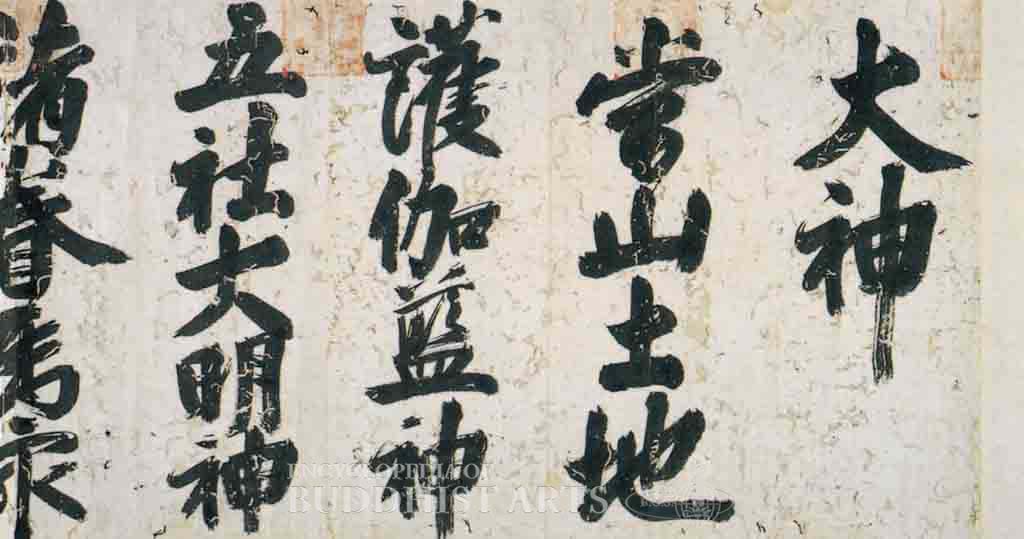 大神
當山土地
護伽藍神
五社大明神
諸眷
ENCYCLOPEDIA OF
BUDDHIST ARTS